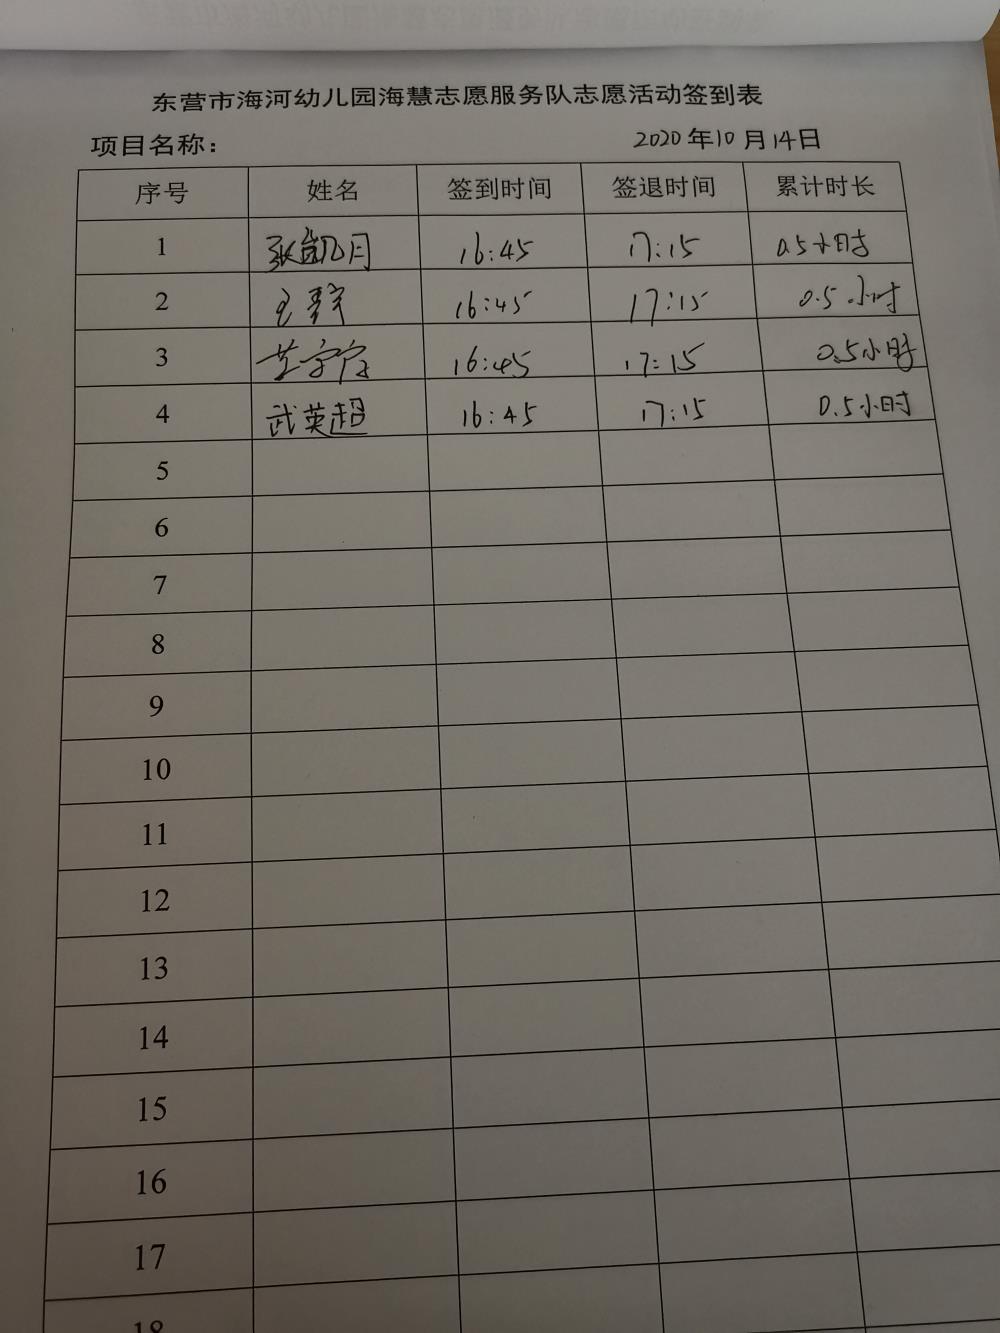 东营市海河幼儿园海慧志愿服务队志愿活动签到表
项目名称： 2020年10月14日
序号 姓名 签到时间 签退时间 累计时长
1 张凯月 16:45 17:15 0.5小时
2 16:45 17:15 0.5小时
3 16:45 17:15 0.5小时
4 武英超 16:45 17:15 0.5小时
5
6
7
8
9
10
11
12
13
14
15
16
17
18